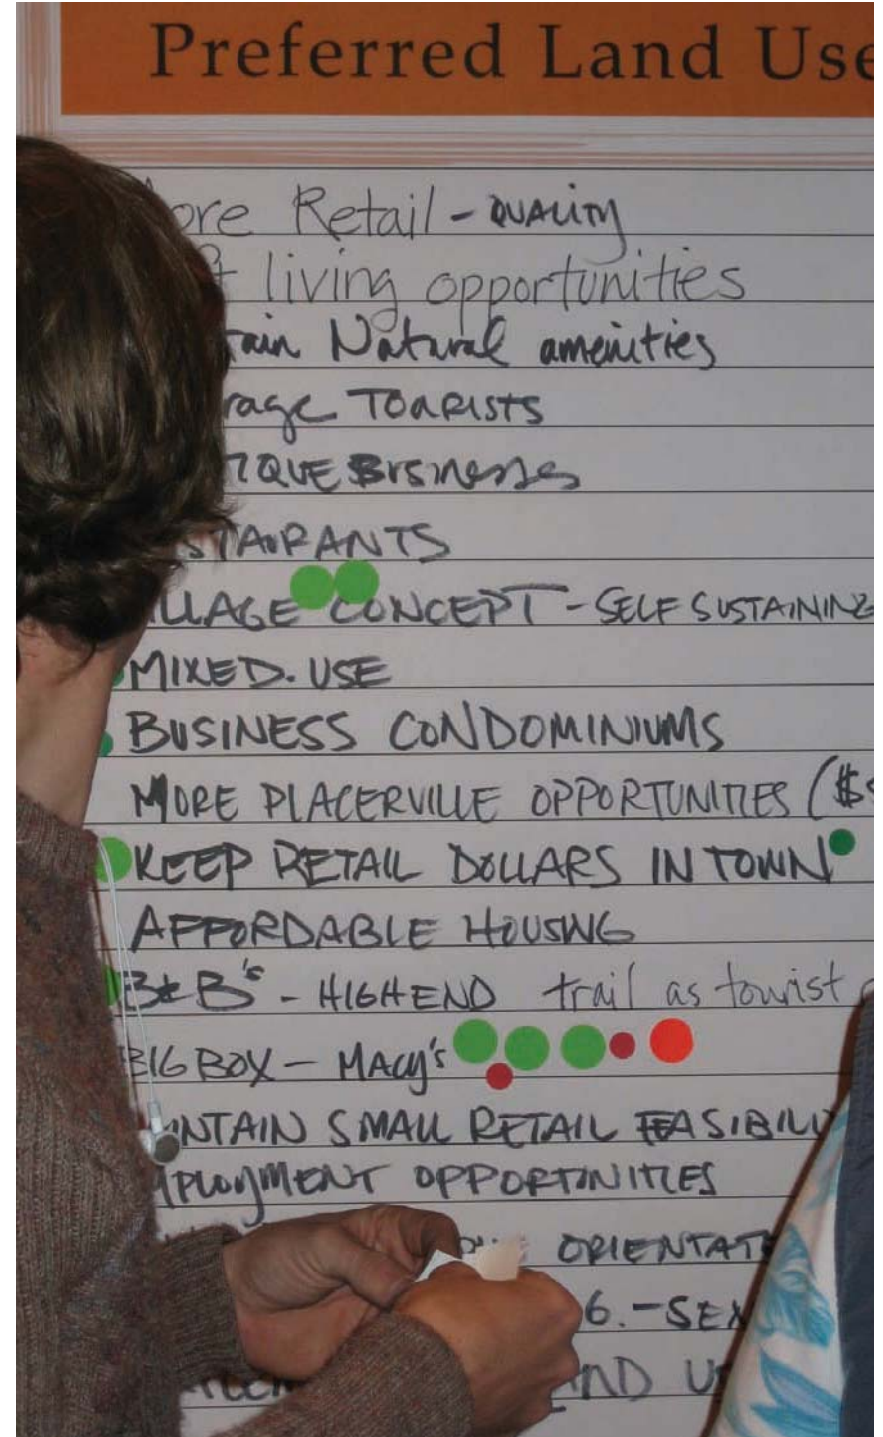 Preferred Land Use
ore Retail - QUALITY
living opportunities
tain Natural amenities
rage TOURISTS
TIQUE BUSINESSES
STAURANTS
LLAGE CONCEPT - SELF SUSTAINING
MIXED-USE
BUSINESS CONDOMINIUMS
MORE PLACERVILLE OPPORTUNITIES ($
KEEP RETAIL DOLLARS IN TOWN
AFFORDABLE HOUSING
B&B's - HIGH END trail as tourist
BIG BOX - MACY'S
NTAIN SMALL RETAIL FEASIBILI
PLOYMENT OPPORTINITIES
ORIENTATE
G. - SEX
ND U